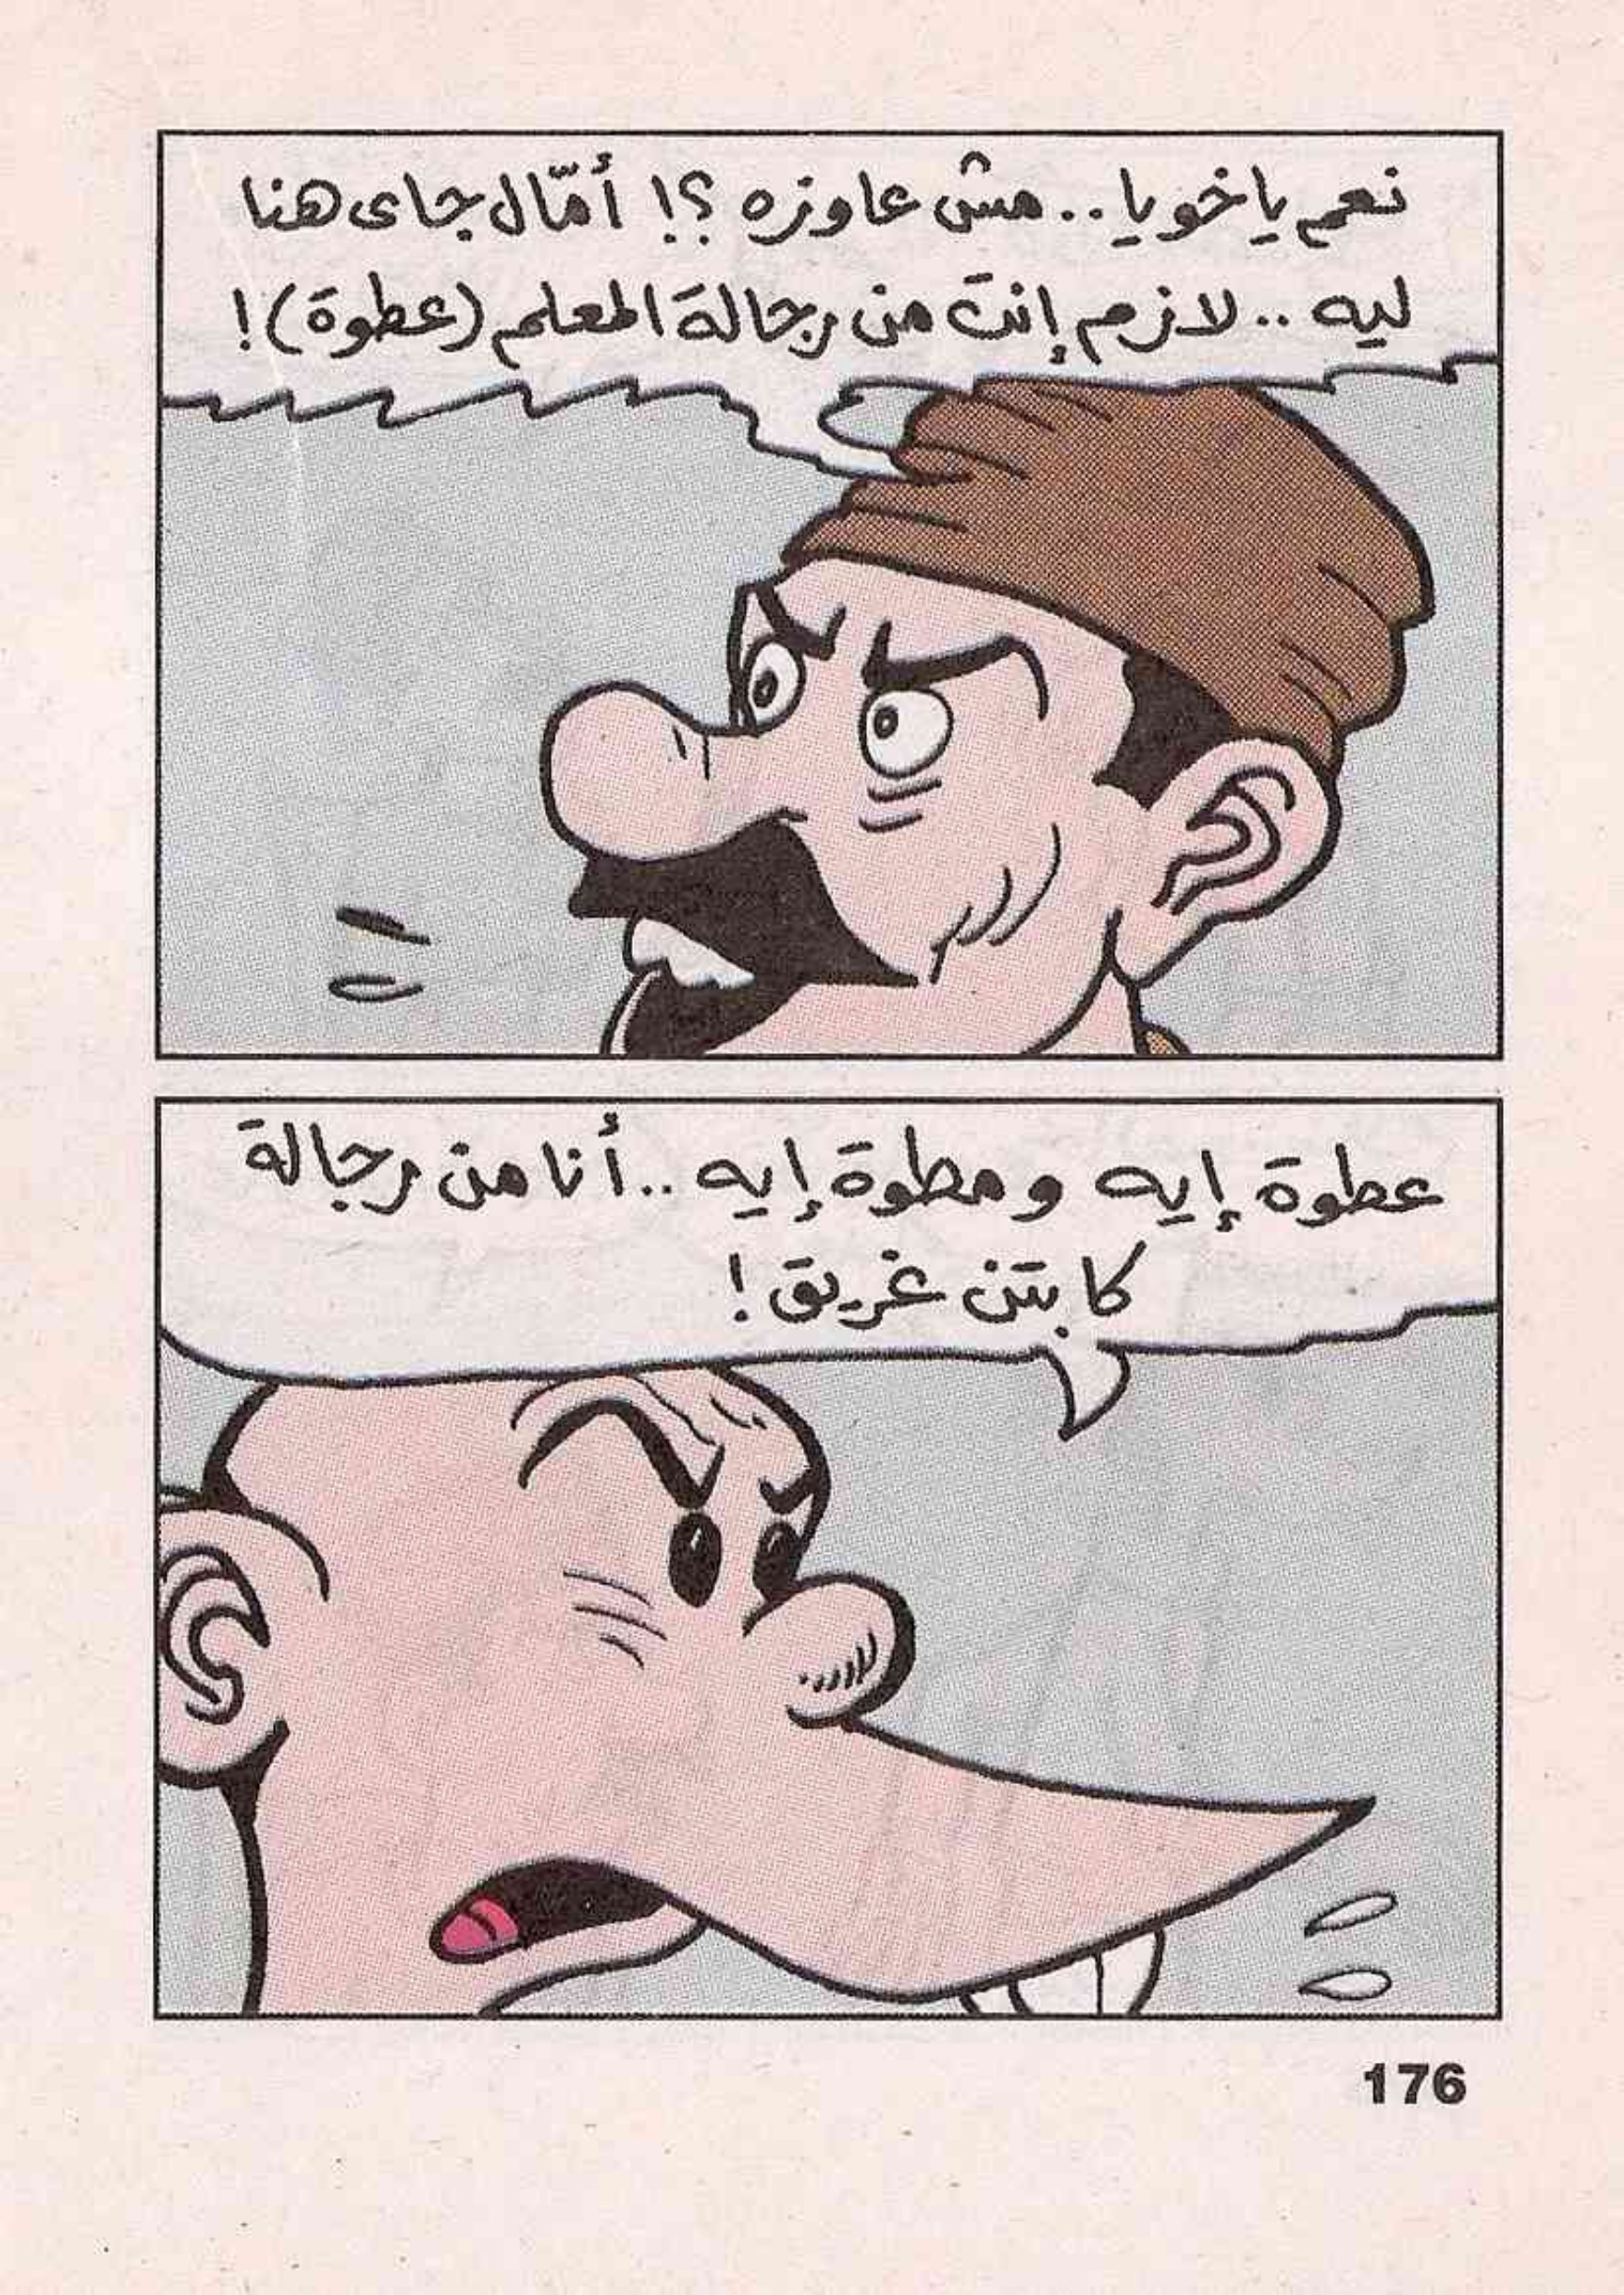 نعم ياخويا.. مش عاوزه ؟! أمّال جاى هنا
ليه .. لازم إنت من رجالة المعلم (عطوة) !
عطوة إيه ومطوة إيه .. أنا من رجالة
كابتن غريق !
176